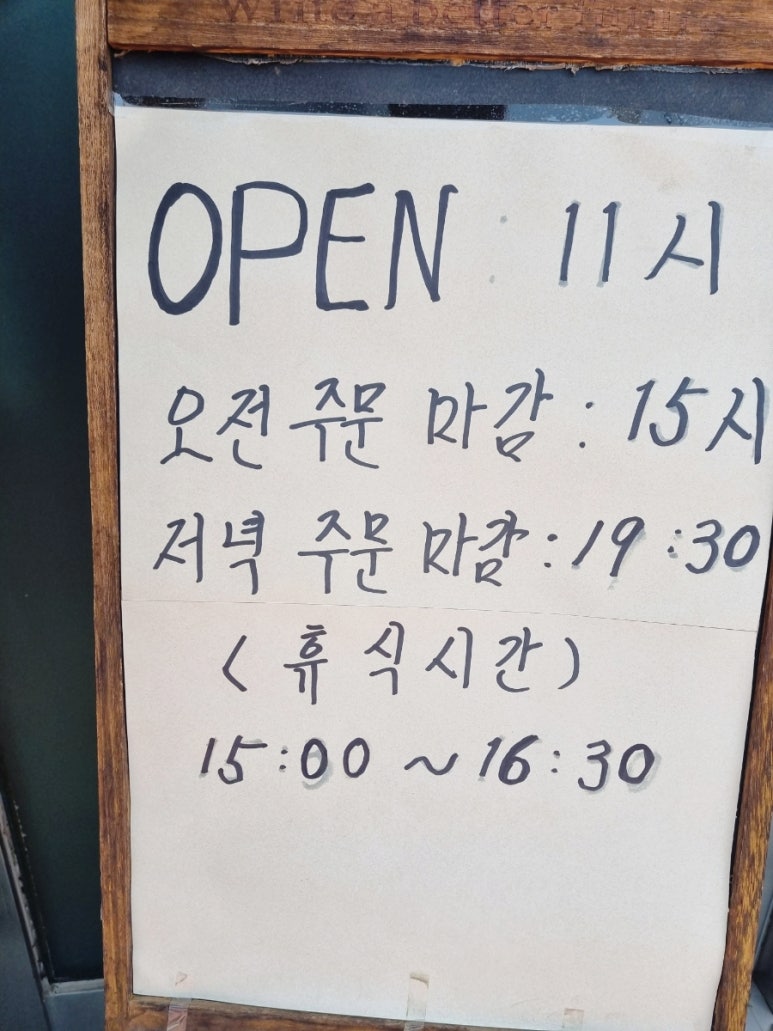 Write a better
OPEN : 11시
오전 주문 마감 : 15시
저녁 주문 마감 : 19:30
(휴식시간)
15:00 ~ 16:30